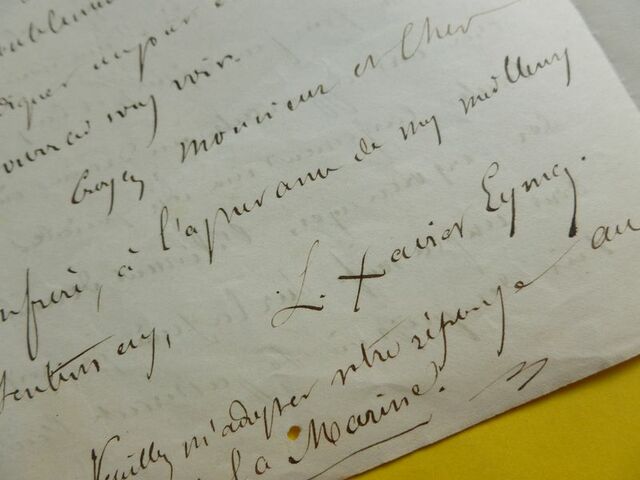 diquer un jour
pourrai vous voir.
Croyez monsieur et Cher
onfrère, à l'assurance de mes meilleurs
sentiments,
L. Xavier Eyma.
Veuillez m'adresser votre réponse au
de la Marine.